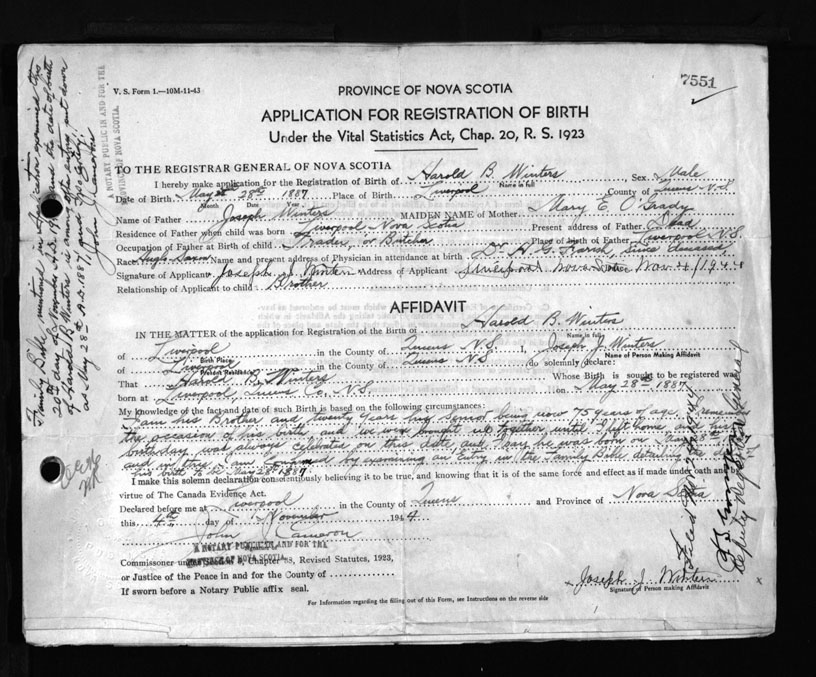 7551
V. S. Form 1.—10M-11-43
PROVINCE OF NOVA SCOTIA
APPLICATION FOR REGISTRATION OF BIRTH
Under the Vital Statistics Act, Chap. 20, R. S. 1923
TO THE REGISTRAR GENERAL OF NOVA SCOTIA
I hereby make application for the Registration of Birth of Harold B. Winters Sex Male
Name in full
Date of Birth May 28th 1887 Place of Birth Liverpool County of Queens N.S.
Month Date Year
Name of Father Joseph Winters MAIDEN NAME of Mother Mary E. O'Grady
Residence of Father when child was born Liverpool Nova Scotia Present address of Father Dead
Occupation of Father at Birth of child Trader, or Butcher Place of birth of Father Liverpool N.S.
Race Name and present address of Physician in attendance at birth Dr H. G. Farish, Since deceased,
Signature of Applicant Joseph J. Winters Address of Applicant Liverpool Nova Scotia Nov 4/1944
Relationship of Applicant to child Brother
AFFIDAVIT
IN THE MATTER of the application for Registration of the Birth of Harold B. Winters
Name in full
of Liverpool in the County of Queens N.S. I, Joseph J. Winters
Birth Place Name of Person Making Affidavit
of Liverpool in the County of Queens N.S. do solemnly declare:
Present Residence
That Harold B. Winters Whose Birth is sought to be registered was
born at Liverpool, Queens Co., N.S. on May 28th 1887
My knowledge of the fact and date of such Birth is based on the following circumstances:
I am his Brother and twenty years his senior being now 75 years of age. I remember
the occasion of his birth and we were brought up together until I left home and his
birthday was always celebrated on this date and I say he was born on
by examining an entry in the Family Bible detailing
his birth to be May 28th 1887
I make this solemn declaration conscientiously believing it to be true, and knowing that it is of the same force and effect as if made under oath and by
virtue of The Canada Evidence Act.
Declared before me at Liverpool in the County of Queens and Province of Nova Scotia
this 4th day of November 1944
John Cameron
A NOTARY PUBLIC IN AND FOR THE
PROVINCE OF NOVA SCOTIA.
Commissioner under Chapter 38, Revised Statutes, 1923,
or Justice of the Peace in and for the County of
If sworn before a Notary Public affix seal.
Joseph J. Winters
Signature of Person making Affidavit
For Information regarding the filling out of this Form, see Instructions on the reverse side
Family Bible mentioned in application examined this
20th day of November A.D. 1944 and the date of birth
of Harold B Winters is among the entries, put down
as May 28th A.D. 1887,
John Cameron
A NOTARY PUBLIC IN AND FOR THE
PROVINCE OF NOVA SCOTIA.
Deputy Registrar General